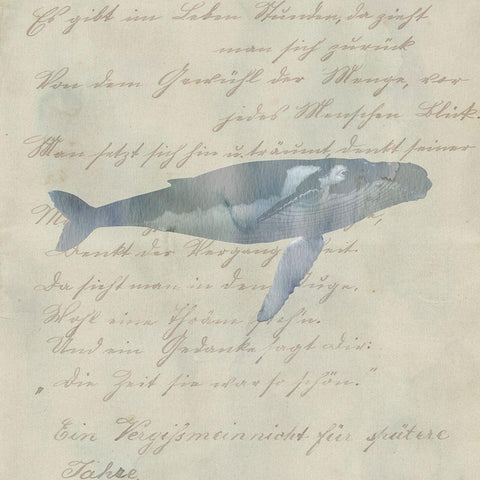 Es gibt im Leben Stunden, da zieht
man sich zurück
Von dem Gewühl der Menge, vor
jedes Menschen Blick.
Man setzt sich hin u. träumt, denkt seiner
Denkt der Vergang heit.
Da sieht man in dem Auge.
Wohl eine Thräm seh'n.
Und ein Gedanke sagt Dir:
"Die Zeit sie war so schön."
Ein Vergißmeinnicht für spätere
Jahre.